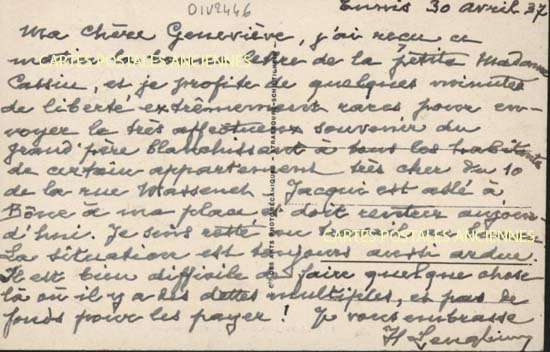 D1V2446
Tunis 30 avril 37
Ma chère Geneviève, j'ai reçu ce
matin la lettre de la petite Madame
Cassin, et je profite de quelques minutes
de liberté extrêmement rares pour en-
voyer le très affectueux souvenir du
grand'père blanchissant à tous les habitants
de certain appartement très cher du 10
de la rue Massenet. Jacqui est allé à
Bône à ma place et doit rentrer aujour-
d'hui. Je suis resté au
La situation est toujours aussi ardue.
Il est bien difficile de faire quelque chose
là où il y a des dettes multiples, et pas de
fonds pour les payer ! Je vous embrasse
H
CARTES POSTALES ANCIENNES
CARTES POSTALES ANCIENNES
CIE DES ARTS PHOTOMÉCANIQUES - STRASBOURG-SCHILTIGHEIM